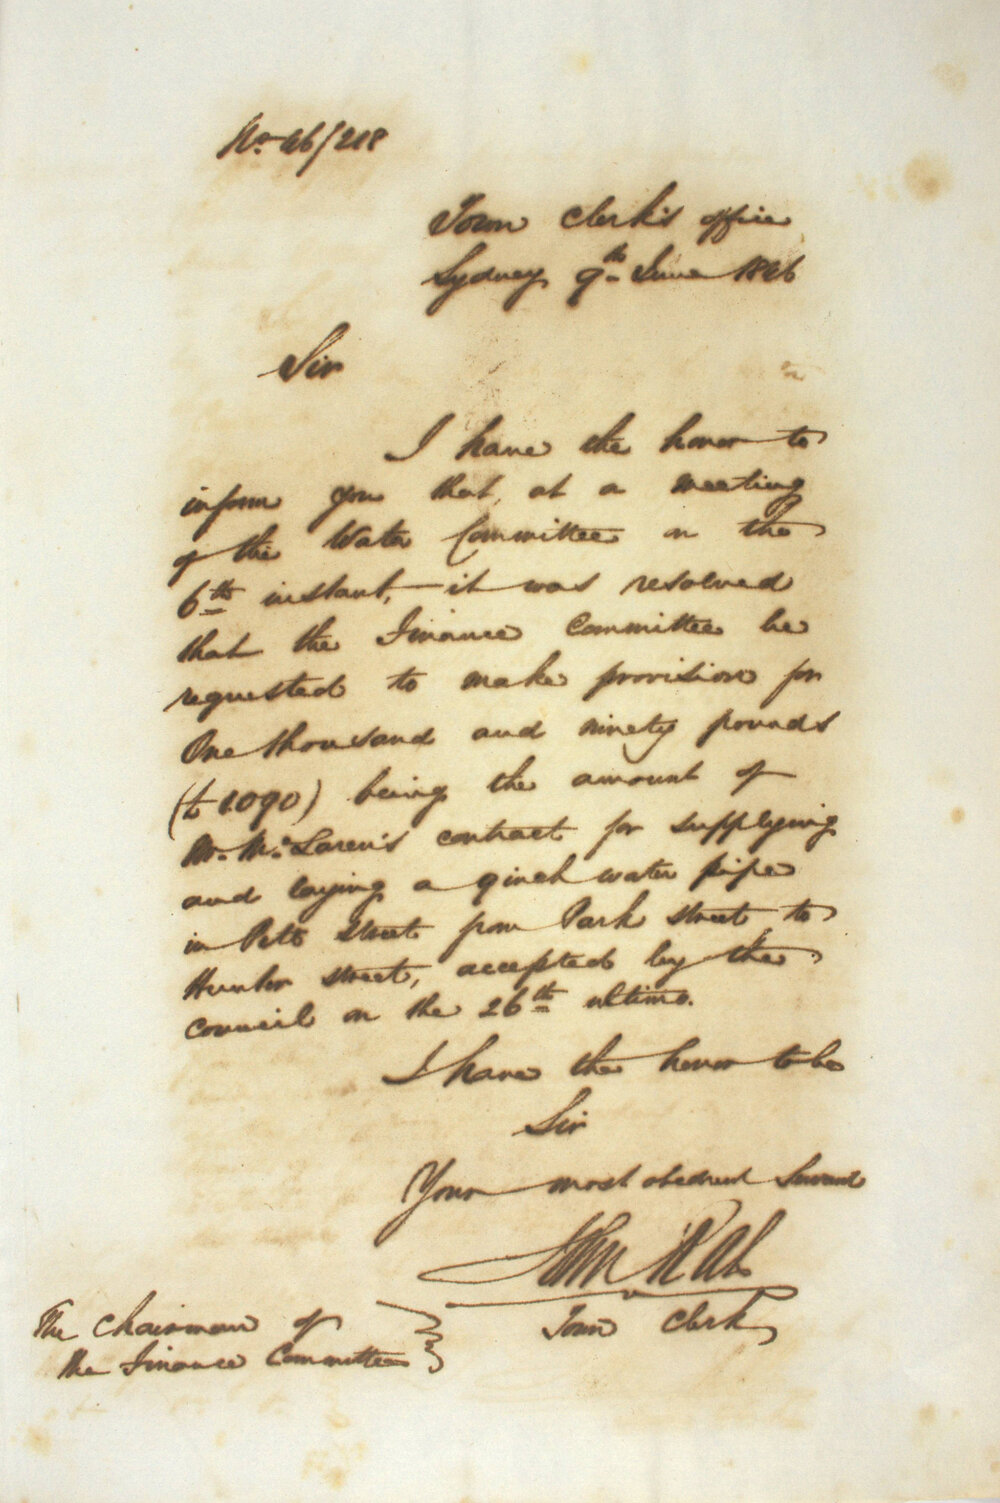 No. 46/218
Town Clerk's office
Sydney 9th June 1846
Sir
I have the honor to
inform you that, at a meeting
of the Water Committee on the
6th instant, — it was resolved
that the Finance Committee be
requested to make provision for
One thousand and ninety pounds
(£1.090) being the amount of
Mr. McLaren's contract for supplying
and laying a 9 inch water pipe
in Pitt Street from Park street to
Hunter street, accepted by the
council on the 26th ultimo.
I have the honor to be
Sir
Your most obedient Servant
John
Town Clerk
The Chairman of
the Finance Committee